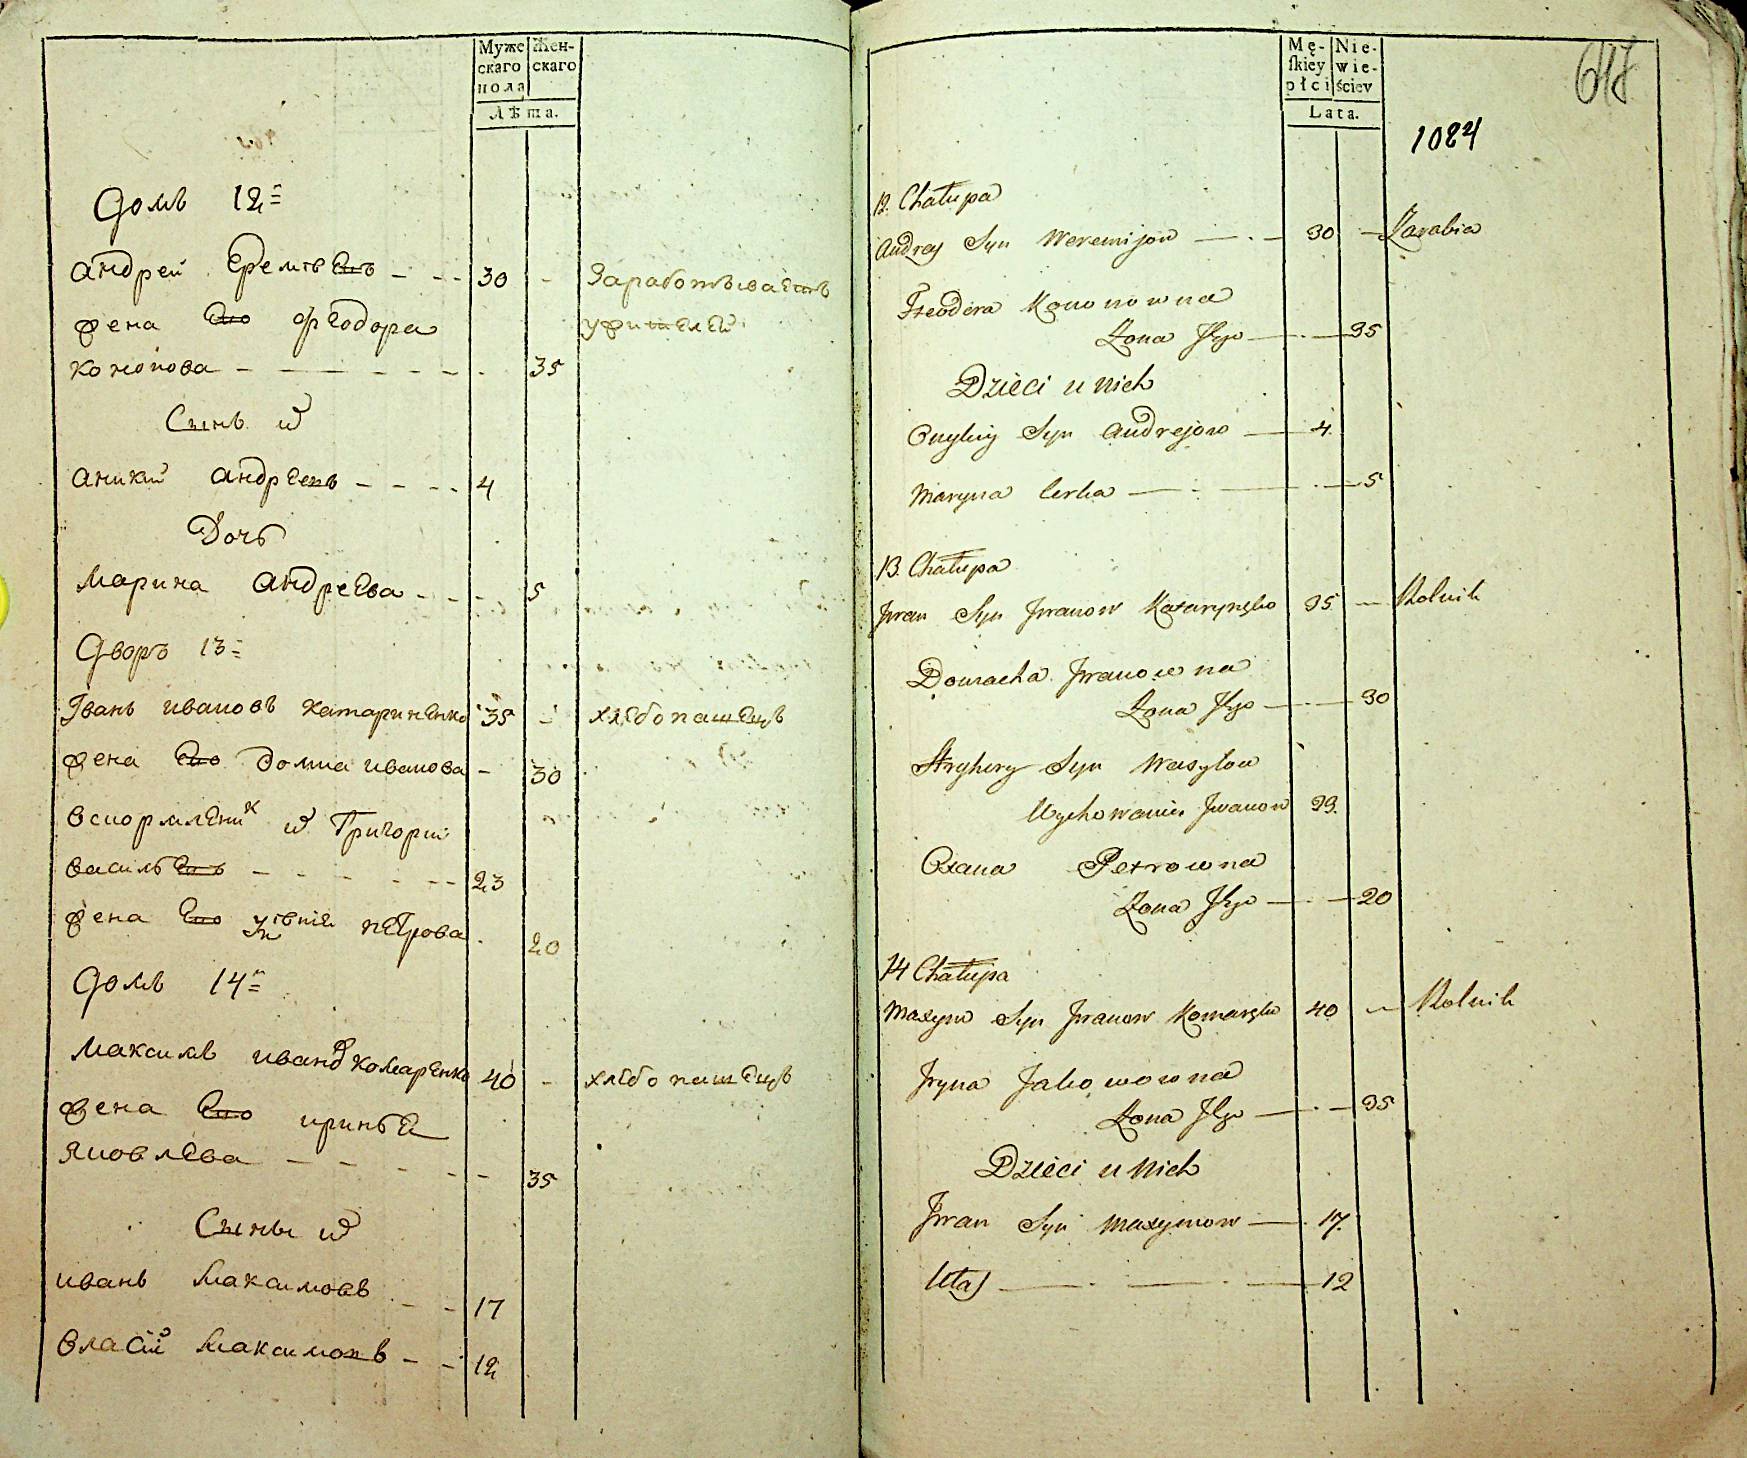 Муже
скаго
пола
Жен-
скаго
Лѣта.
Домъ 12=
Андрей Еремѣевъ - - - 30 -
Жена Его Феодора
Кононова - - - - - - - 35
Сынъ
Аникий Андреевъ - - - - 4
Дочь
Марина Андреева - - - 5
Дворъ 13=
Іванъ Ивановъ Катариненко 35 - хлебопашецъ
Жена Его Домна Иванова - 30
Григорий
Васильевъ - - - - - - 23
Жена Его Петрова 20
Домъ 14=
Максимъ Иванов Комаренко 40 - хлебопашецъ
Жена Его
Яковлева - - - - - - 35
Сыны
Иванъ Максимовъ - - 17
Власий Максимовъ - - 12
Mę-
ſkiey
płci
Nie-
wie-
ściey
Lata.
618
1084
12. Chałupa
Andrey Syn Weremijow — . — 30 — Zarabia
Fteodora Kononowna
Zona Jego — . — 35
Dzieci u Nich
Syn Andrejow — 4.
Maryna Corka — . — . — 5
13. Chałupa
Jwan Syn Jwanow 35 — Rolnik
Domacha Jwanowna
Zona Jego — . — 30
Hryhory Syn Wasylow
Wychowaniec Jwanow 23.
Oxana Petrowna
Zona Jego — . — 20
14 Chałupa
Maxym Syn Jwanow 40 — Rolnik
Jryna Jakowowna
Zona Jego — . — 35
Dzieci u Nich
Jwan Syn Maxymow — 17.
Ułas — . — . — 12